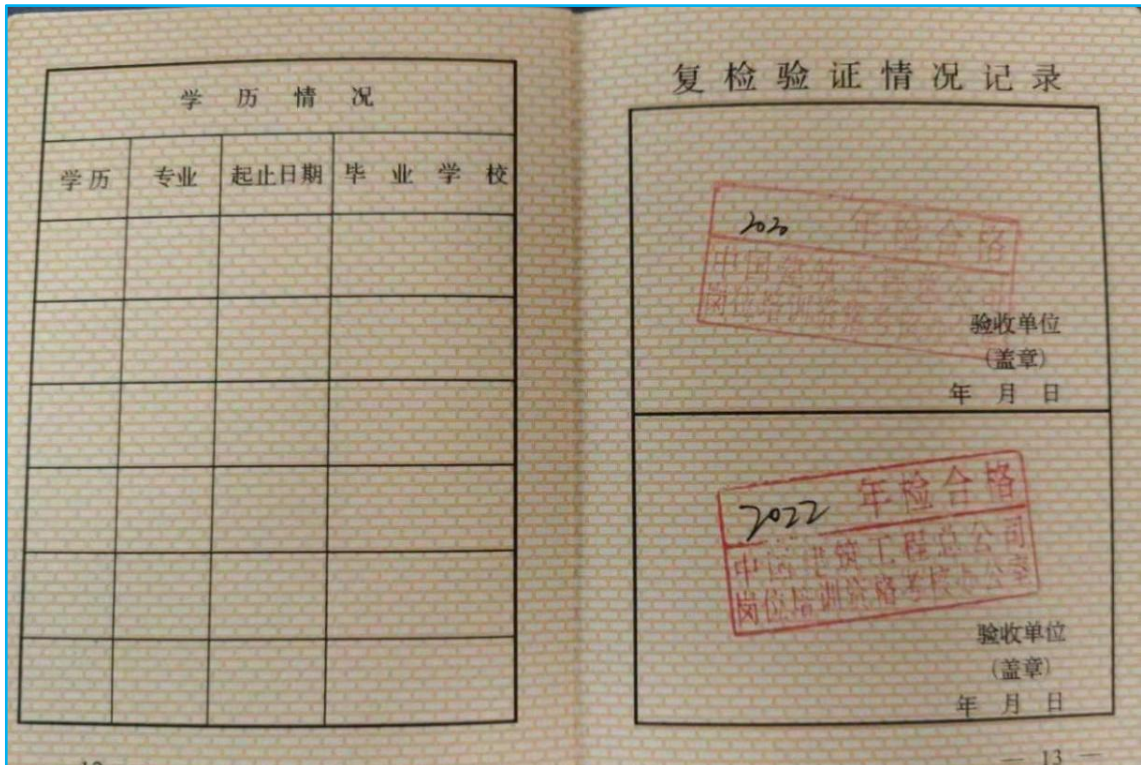 学历情况
学历 专业 起止日期 毕业学校
复检验证情况记录
2020 年检合格
中国建筑工程总公司
岗位培训资格考核办公室
验收单位
(盖章)
年 月 日
2022 年检合格
中国建筑工程总公司
岗位培训资格考核办公室
验收单位
(盖章)
年 月 日
— 13 —